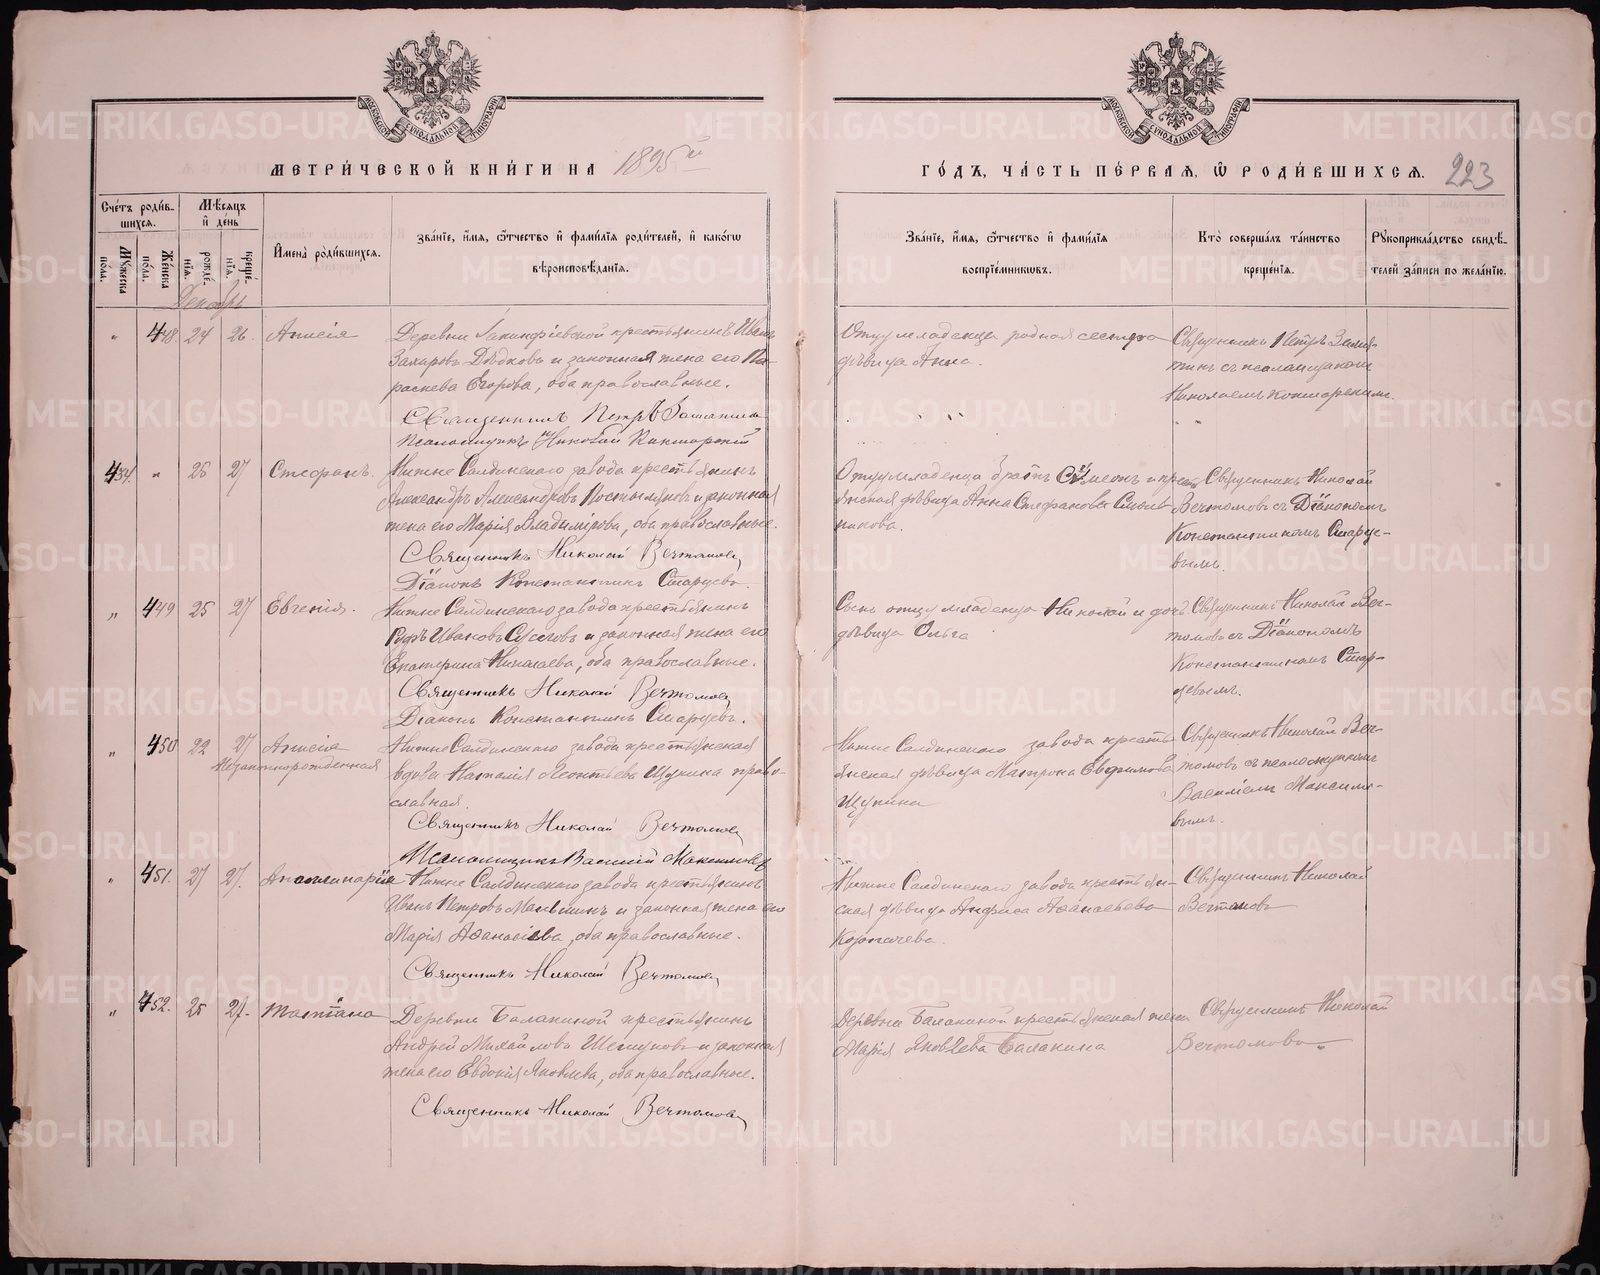 МЕТРИ́ЧЕСКОЙ КНИ́ГИ НА 1895й
ГО́ДЪ, ЧА́СТЬ ПЕ́РВАЯ, Ѡ РОДИ́ВШИХСЯ. 223
Сче́тъ роди́в-
шихся.
Мѣ́сяцъ
и́ де́нь
Му́жеска пола.
Же́нска пола.
рожде́нїя.
креще́нїя.
И́мена̀ роди́вшихся.
Зва́нїе, и́мя, ѻ́тчество и́ фами́лїя роди́телей, и́ како́гѡ
вѣроисповѣ́данїя.
Зва́нїе, и́мя, ѻ́тчество и́ фами́лїя
воспрїе́мникѡвъ.
Кто̀ соверша́лъ та́инство
креще́нїя.
Рꙋкоприкла́дство свидѣ́-
телей за́писи по жела́нїю.
Декабрь
" 448. 24 26. Анисія
Деревни Гакинфіевской крестьянинъ Иванъ
Захаровъ Дѣдковъ и законная жена его Па-
раскева Егорова, оба православные.
Священникъ Петръ
Псаломщикъ Николай
Отцу младенца родная сестра
дѣвица Анна.
Священникъ Петръ
съ псаломщикомъ
Николаемъ
434. " 25 27 Стефанъ.
Нижне Салдинскаго завода крестьянинъ
Александръ Александровъ Постыляковъ и законная
жена его Марія Владимірова, оба православные.
Священникъ Николай Вечтомовъ
Діаконъ Константинъ Старцевъ.
Отцу младенца братъ Симеонъ и крест-
янская дѣвица Анна Стефанова
никова.
Священникъ Николай
Вечтомовъ съ Діакономъ
Константиномъ Старце-
вымъ.
" 449 25 27 Евгенія.
Нижне Салдинскаго завода крестьянинъ
Руфъ Ивановъ Сусловъ и законная жена его
Екатерина Николаева, оба православные.
Священникъ Николай Вечтомовъ
Діаконъ Константинъ Старцевъ.
Сынъ отцу младенца Николай и дочь
дѣвица Ольга
Священникъ Николай Веч-
томовъ съ Діакономъ
Константиномъ Стар-
цевымъ.
" 450 22 27 Анисія
Незаконнорожденная
Нижне Салдинскаго завода крестьянская
вдова Наталія Леонтьева Щукина право-
славная.
Священникъ Николай Вечтомовъ
Псаломщикъ Василій Максимовъ
Нижне Салдинскаго завода кресть-
янская дѣвица Матрона Евфимова
Щукина
Священникъ Николай Веч-
томовъ съ псаломщикомъ
Василіемъ Максимо-
вымъ.
" 451. 27 27. Аполлинарія
Нижне Салдинскаго завода крестьянинъ
Иванъ Петровъ и законная жена его
Марія Аѳанасіева, оба православные.
Священникъ Николай Вечтомовъ
Нижне Салдинскаго завода крестьян-
ская дѣвица Анфиса Аѳанасьева
Корпачева.
Священникъ Николай
Вечтомовъ
" 452. 25 27. Татіана
Деревни Балакиной крестьянинъ
Андрей Михайловъ и законная
жена его Евдокія Яковлева, оба православные.
Священникъ Николай Вечтомовъ
Деревни Балакиной крестьянская жена
Марія Яковлева Балакина
Священникъ Николай
Вечтомовъ.